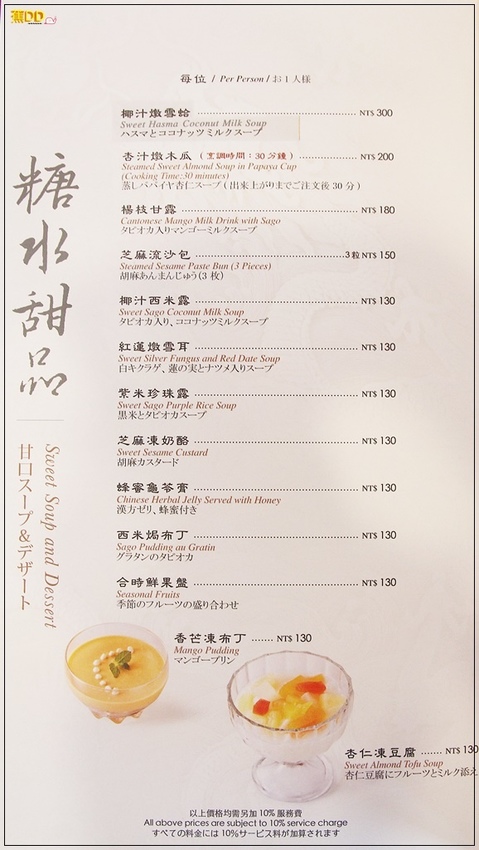 蕉DD
每位 / Per Person / お1人様
糖水甜品
Sweet Soup and Dessert
甘口スープ&デザート
椰汁燉雪蛤 NT$ 300
Sweet Hasma Coconut Milk Soup
ハスマとココナッツミルクスープ
杏汁燉木瓜 (烹調時間:30分鐘) NT$ 200
Steamed Sweet Almond Soup in Papaya Cup
(Cooking Time:30 minutes)
蒸しパパイヤ杏仁スープ(出来上がりまでご注文後30分)
楊枝甘露 NT$ 180
Cantonese Mango Milk Drink with Sago
タピオカ入りマンゴーミルクスープ
芝麻流沙包 3粒 NT$ 150
Steamed Sesame Paste Bun (3 Pieces)
胡麻あんまんじゅう(3枚)
椰汁西米露 NT$ 130
Sweet Sago Coconut Milk Soup
タピオカ入り、ココナッツミルクスープ
紅蓮燉雪耳 NT$ 130
Sweet Silver Fungus and Red Date Soup
白キクラゲ、蓮の実とナツメ入りスープ
紫米珍珠露 NT$ 130
Sweet Sago Purple Rice Soup
黒米とタピオカスープ
芝麻凍奶酪 NT$ 130
Sweet Sesame Custard
胡麻カスタード
蜂蜜龜苓膏 NT$ 130
Chinese Herbal Jelly Served with Honey
漢方ゼリ、蜂蜜付き
西米焗布丁 NT$ 130
Sago Pudding au Gratin
グラタンのタピオカ
合時鮮果盤 NT$ 130
Seasonal Fruits
季節のフルーツの盛り合わせ
香芒凍布丁 NT$ 130
Mango Pudding
マンゴープリン
杏仁凍豆腐 NT$ 130
Sweet Almond Tofu Soup
杏仁豆腐にフルーツとミルク添え
以上價格均需另加10%服務費
All above prices are subject to 10% service charge
すべての料金には10%サービス料が加算されます